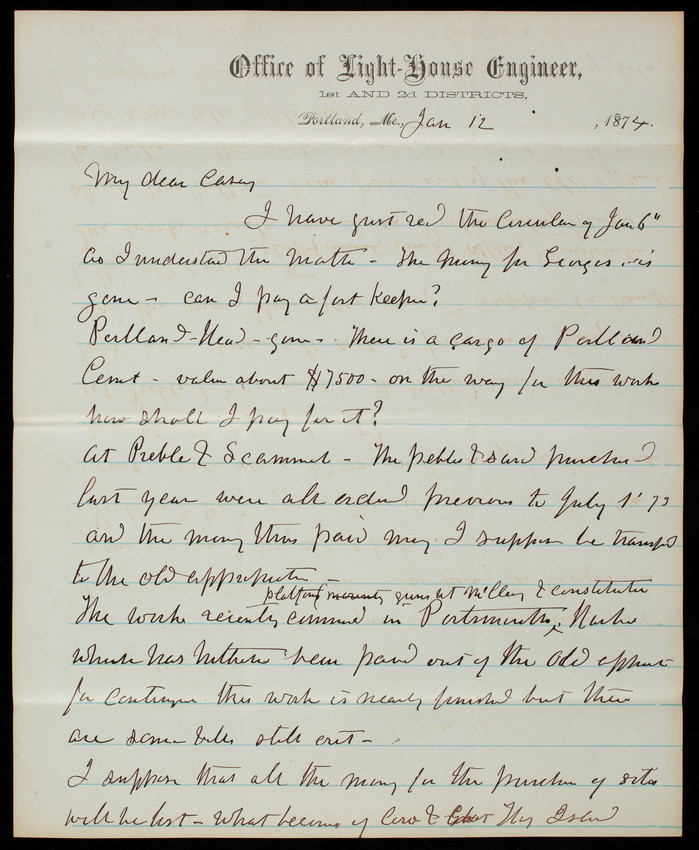 Office of Light-House Engineer,
1st AND 2d DISTRICTS,
Portland, Me., Jan 12, 1874.
My dear Casey
I have just recd the Circular of Jan 6"
As I understand the matter - the money for Georges is
gone - can I pay a fort keeper?
Portland-Head - gone - There is a cargo of Portland
Cement - value about $7500 - on the way for this work
how shall I pay for it?
At Preble & Scammel - The pebbles & sand purchased
last year were all ordered previous to July 1' 73
and the money thus paid may I suppose be transfd
to the old appropriation -
platforms mounting guns at McClary & Constitution
The work recently commenced in Portsmouth Harbor
which has hitherto been paid out of the old appn
for contingen this work is nearly finished but there
are some bills still out -
I suppose that all the money for the purchase of sites
will be lost - what becomes of Cow & Hog Island